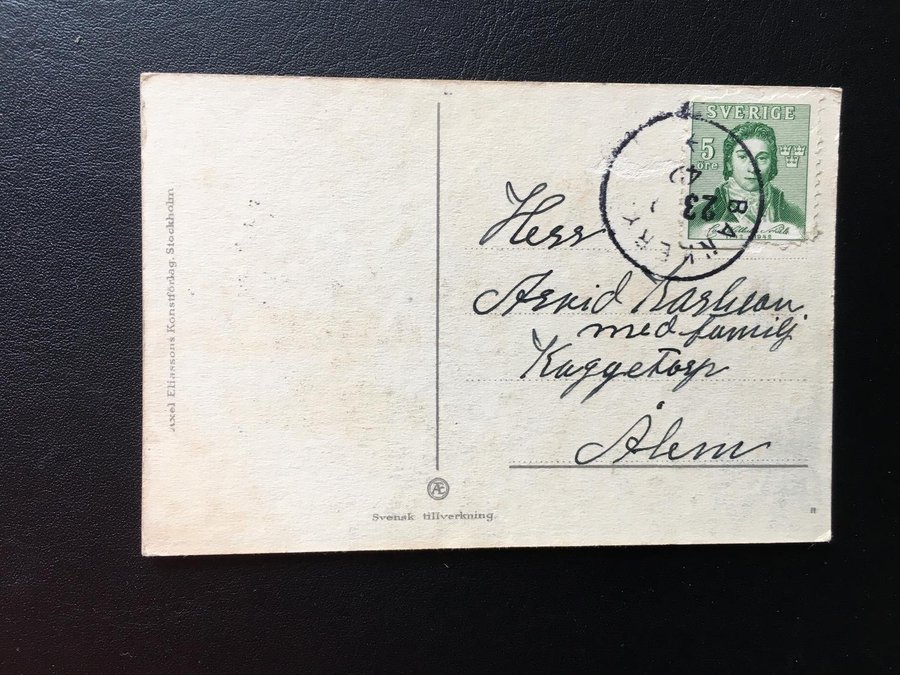 Axel Eliassons Konstförlag. Stockholm
SVERIGE
5
öre
1942
23
Herr
Arvid Karlson
med familj
Kaggetorp
Ålem
Svensk tillverkning.